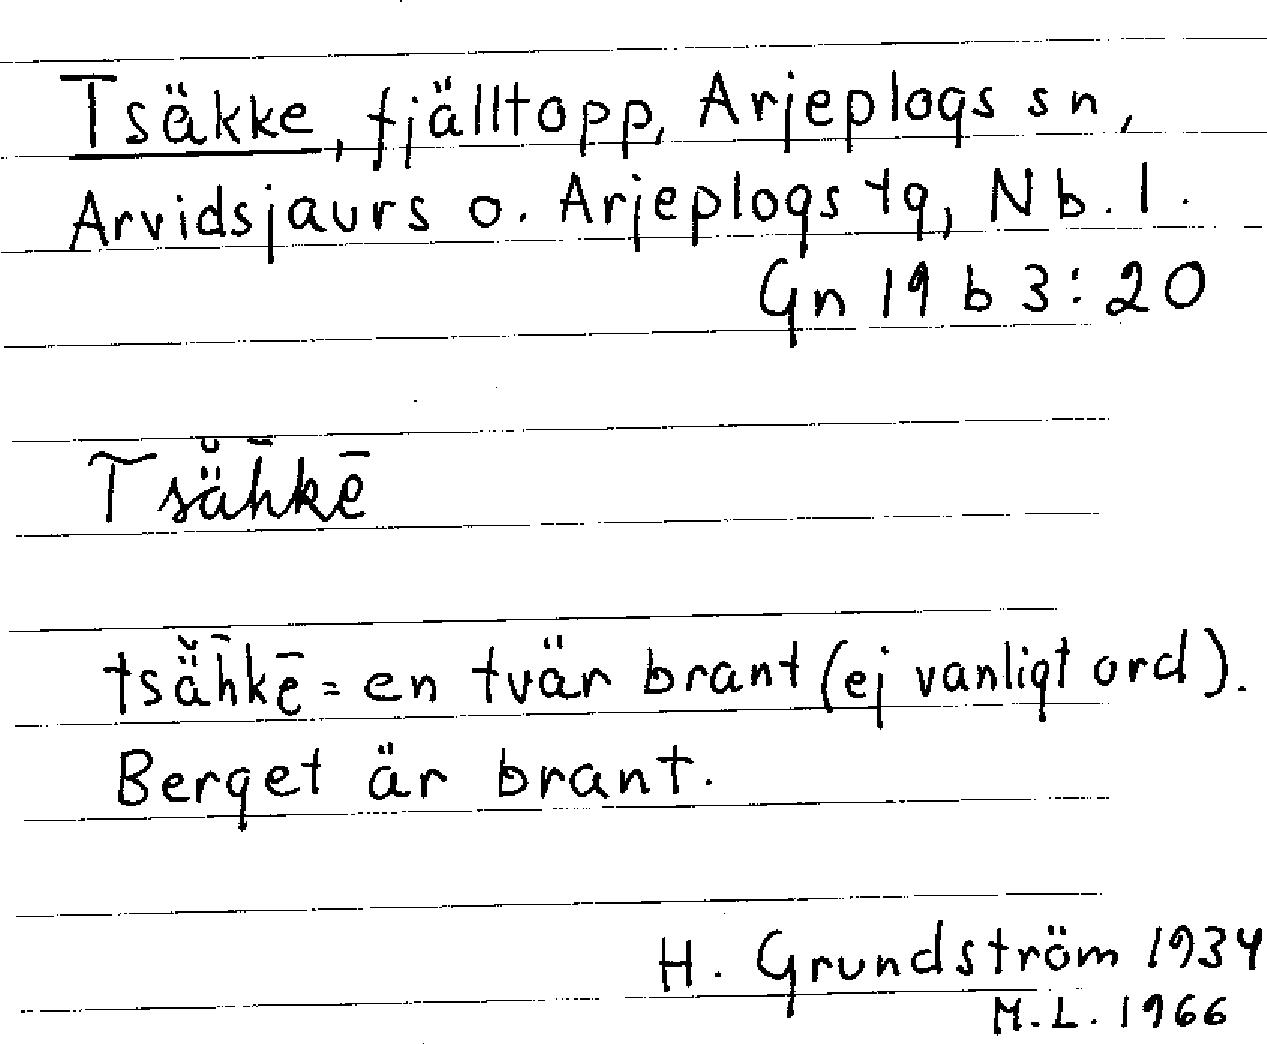 Tsäkke, fjälltopp, Arjeplogs sn,
Arvidsjaurs o. Arjeplogs tg, Nb. l.
Gn 19 b 3:20
Tsä̆h̄kē
tsä̆h̄kē = en tvär brant (ej vanligt ord).
Berget är brant.
H. Grundström 1934
M.L. 1966